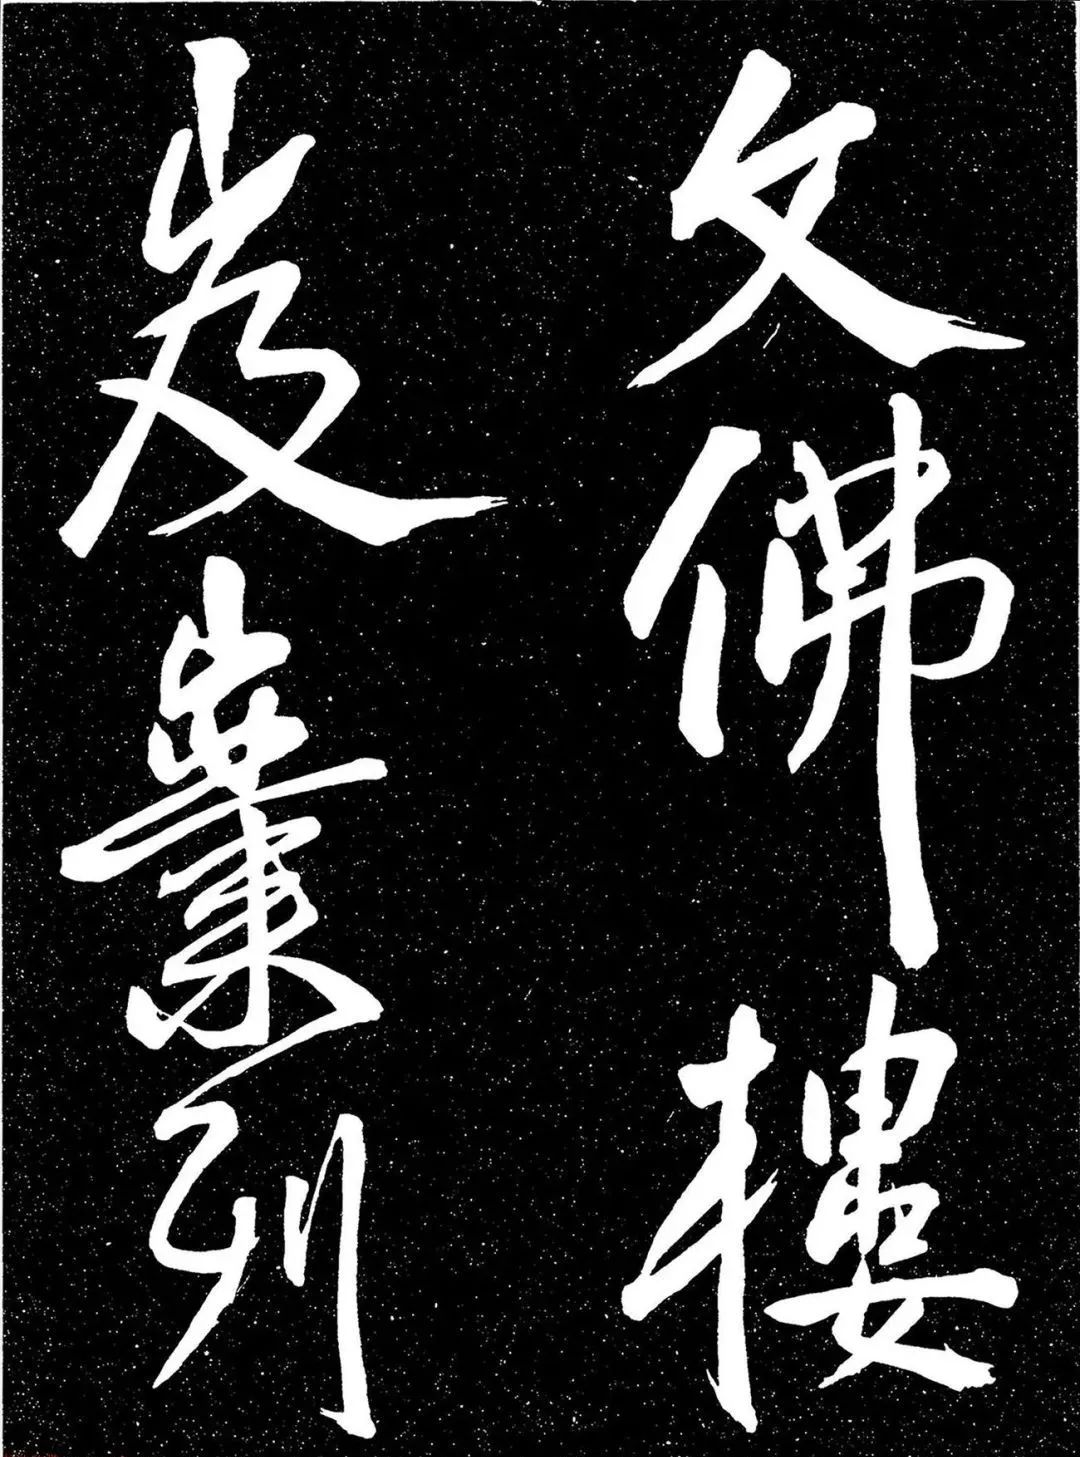 文佛樓
岌嶪列